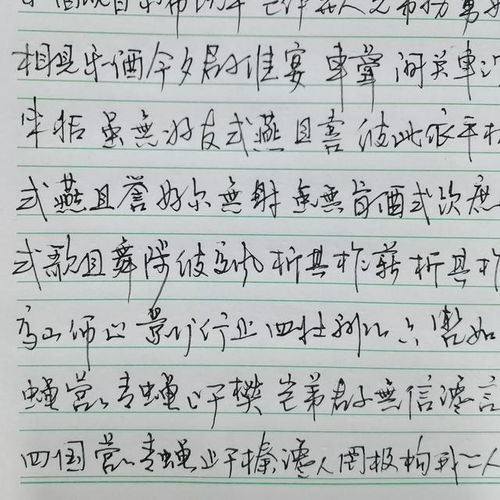 相見 乐酒今夕 君子維宴 車舝 間关車
来括 虽無好友 式燕且喜 依彼平林
式燕且誉 好尔無射 虽無旨酒 式饮庶
式歌且舞 陟彼高岡 析其柞薪 析其柞
高山仰止 景行行止 四牡騑騑 六轡如
蝇 营营青蝇 止于樊 岂弟君子 無信谗言
四国 营营青蝇 止于榛 谗人罔极 构我二人